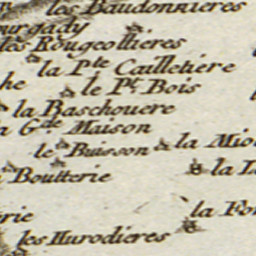 les Baudonnieres
ourgady
les Rougeollieres
la Pte Cailletiere
he
le Pt Bois
la Baschouere
a Gde Maison
le Buisson
la Mio
Boutterie
la L
rie
la Fo
les Hurodieres